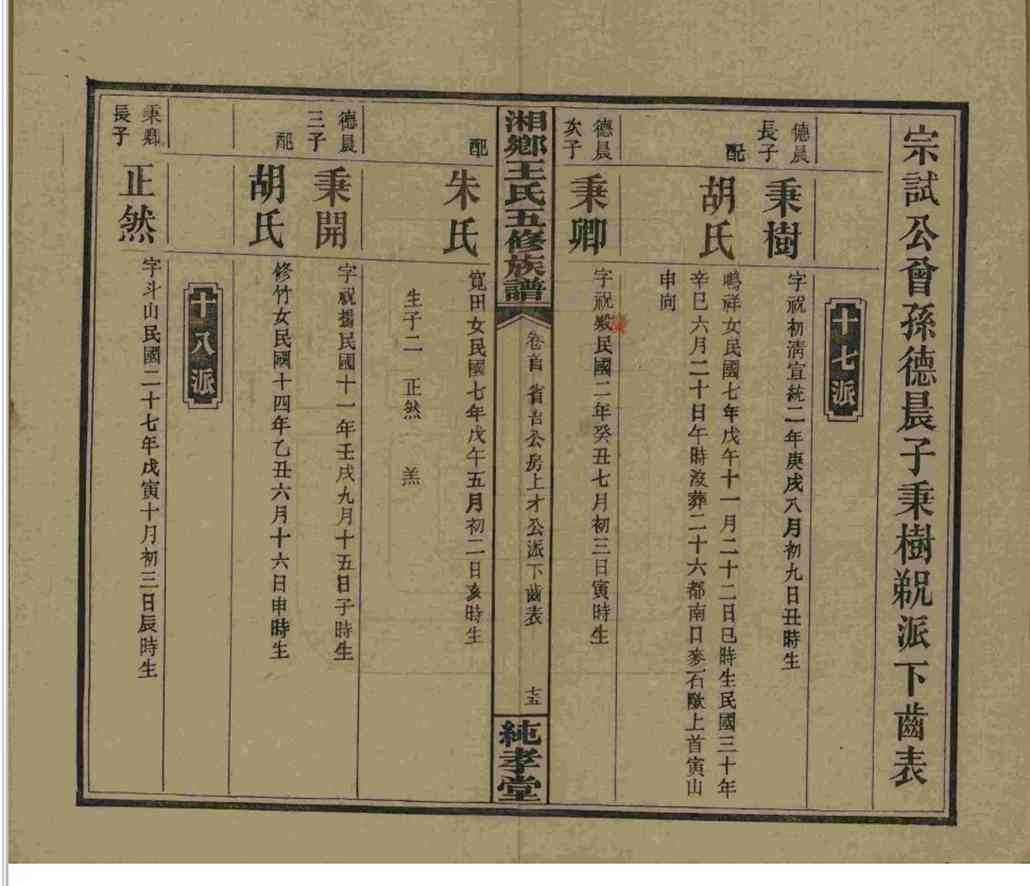 宗試公曾孫德晨子秉樹派下齒表
十七派
德晨
長子
秉樹
字祝初清宣統二年庚戌八月初九日丑時生
配
胡氏
鳴祥女民國七年戊午十一月二十二日巳時生民國三十年
辛巳六月二十日午時沒葬二十六都南日麥石歐上首寅山
申向
德晨
次子
秉卿
字祝殿民國二年癸丑七月初三日寅時生
湘鄉王氏五修族譜
卷首 省吉公房上才公派下齒表
七五
純孝堂
配
朱氏
寬田女民國七年戊午五月初二日亥時生
生子二 正然 羔
德晨
三子
秉開
字祝揚民國十一年壬戌九月十五日子時生
配
胡氏
修竹女民國十四年乙丑六月十六日申時生
十八派
秉卿
長子
正然
字斗山民國二十七年戊寅十月初三日辰時生